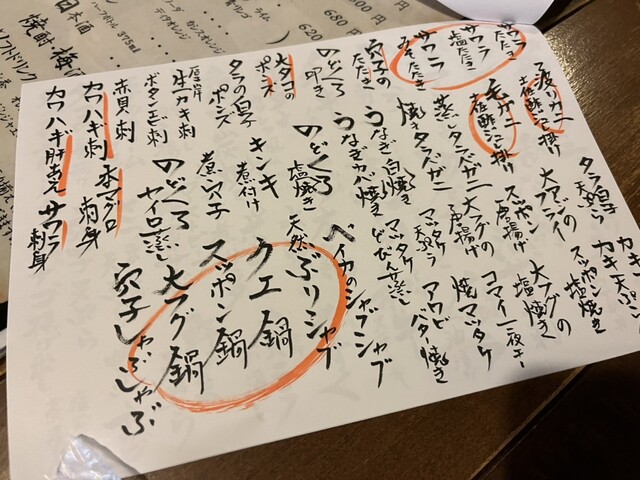 サワラ たたき
サワラ 塩たたき
サワラ みそたたき
穴子の たたき
のどくろ 叩き
大タコの ポン酢
タラの白子 ポン酢
厚岸 生ガキ刺
ボタンエビ刺
赤貝刺
カワハギ刺 本マグロ刺身
カワハギ肝あえ サワラ刺身
渡りガニ 土佐酢ジュレ掛け
毛ガニ 土佐酢ジュレ掛け
蒸しタラバガニ
焼きタラバガニ
うなぎ白焼き
うなぎカバ焼き
のどくろ 塩焼き
キンキ 煮付け
煮穴子
のどくろ セイロ蒸し
タラ白子 天ぷら
大アジの フライ
スッポン 唐揚げ
大フグの 唐揚げ
マツタケ 天ぷら
マツタケ どびん蒸し
カキ カキ天ぷら
スッポン 塩焼き
大フグの 塩焼き
コマイ一夜干
焼マツタケ
アワビ バター焼き
ベイカのシャブシャブ
天然ぶりシャブ
クエ鍋
スッポン鍋
大フグ鍋
穴子しゃぶしゃぶ
日本酒
焼酎
ソフトドリンク
カシスオレンジ
620
680円